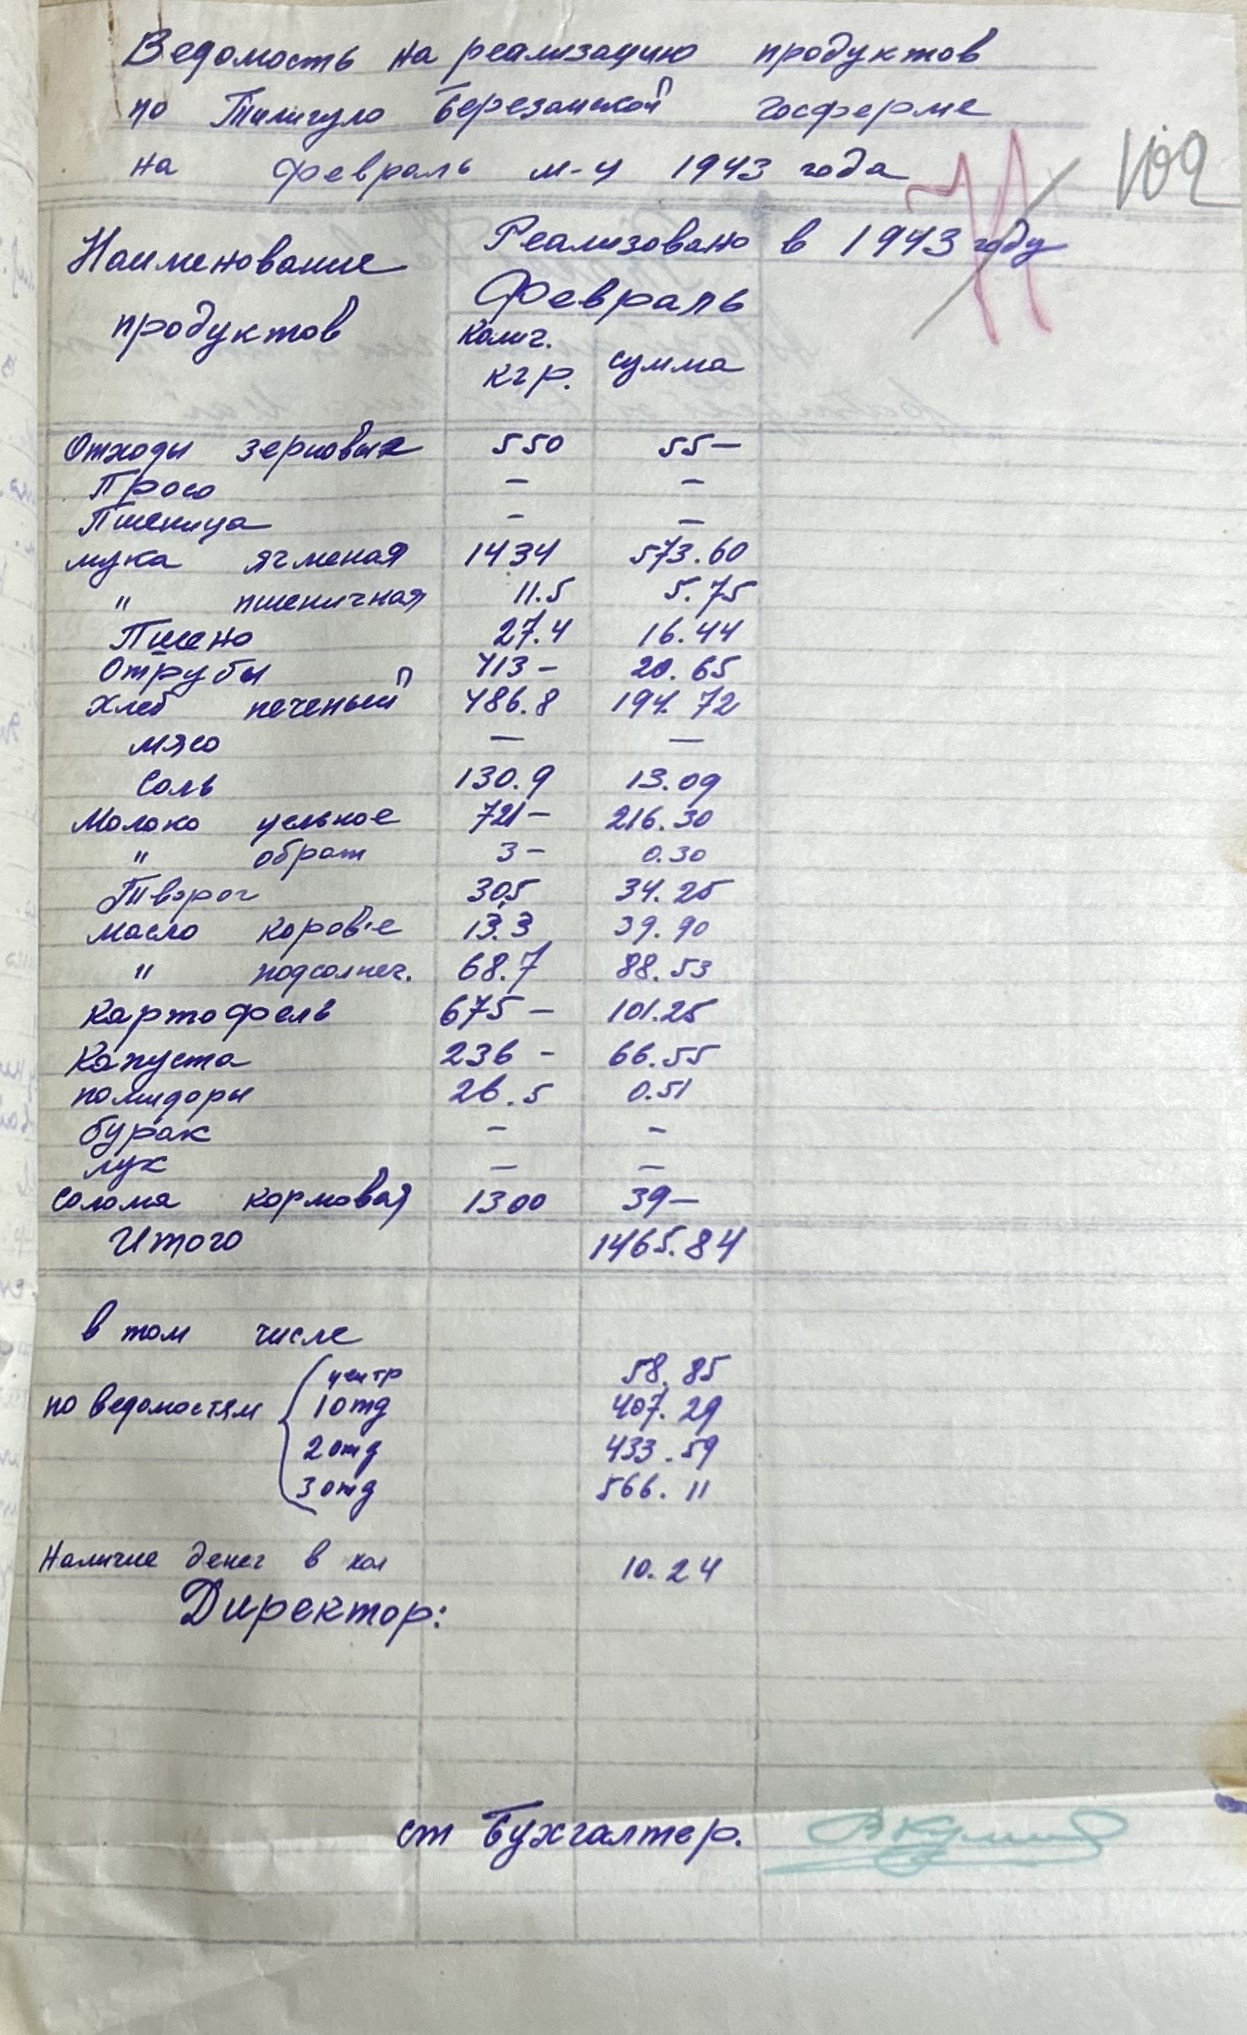 Ведомость на реализацию продуктов
по Тилигуло Березанской госферме
на февраль м-ц 1943 года
102
Наименование продуктов
Реализовано в 1943 году
Февраль
Колич. кгр. сумма
Отходы зерновые 550 55—
Просо — —
Пшеница — —
мука ячменая 1434 573.60
" пшеничная 11.5 5.75
Пшено 27.4 16.44
Отрубы 413— 20.65
Хлеб печеный 486.8 194.72
мясо — —
Соль 130.9 13.09
Молоко цельное 721— 216.30
" обрат 3— 0.30
Творог 30,5 34.25
масло коров'е 13.3 39.90
" подсолнеч. 68.7 88.53
Картофель 675— 101.25
Капуста 236— 66.55
помидоры 26.5 0.51
бурак — —
лук — —
солома кормовая 1300 39—
Итого 1465.84
в том числе
по ведомостям
центр 58.85
1 отд 407.29
2 отд 433.59
3 отд 566.11
Наличие денег в 10.24
Директор:
ст Бухгалтер.